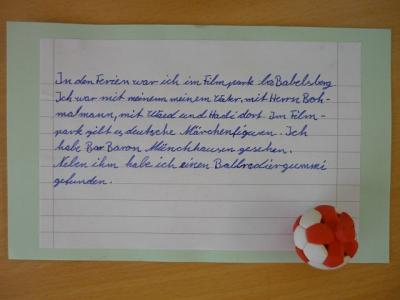 In den Ferien war ich im Filmpark ba Babelsberg
Ich war mit meinem meinem Vater, mit Herrn Boh-
malmann, mit Waed und Hadi dort. Im Film-
park gibt es deutsche Märchenfiguren. Ich
habe Bar Baron Münchhausen gesehen.
Neben ihm habe ich einen Ballradiergummi
gefunden.